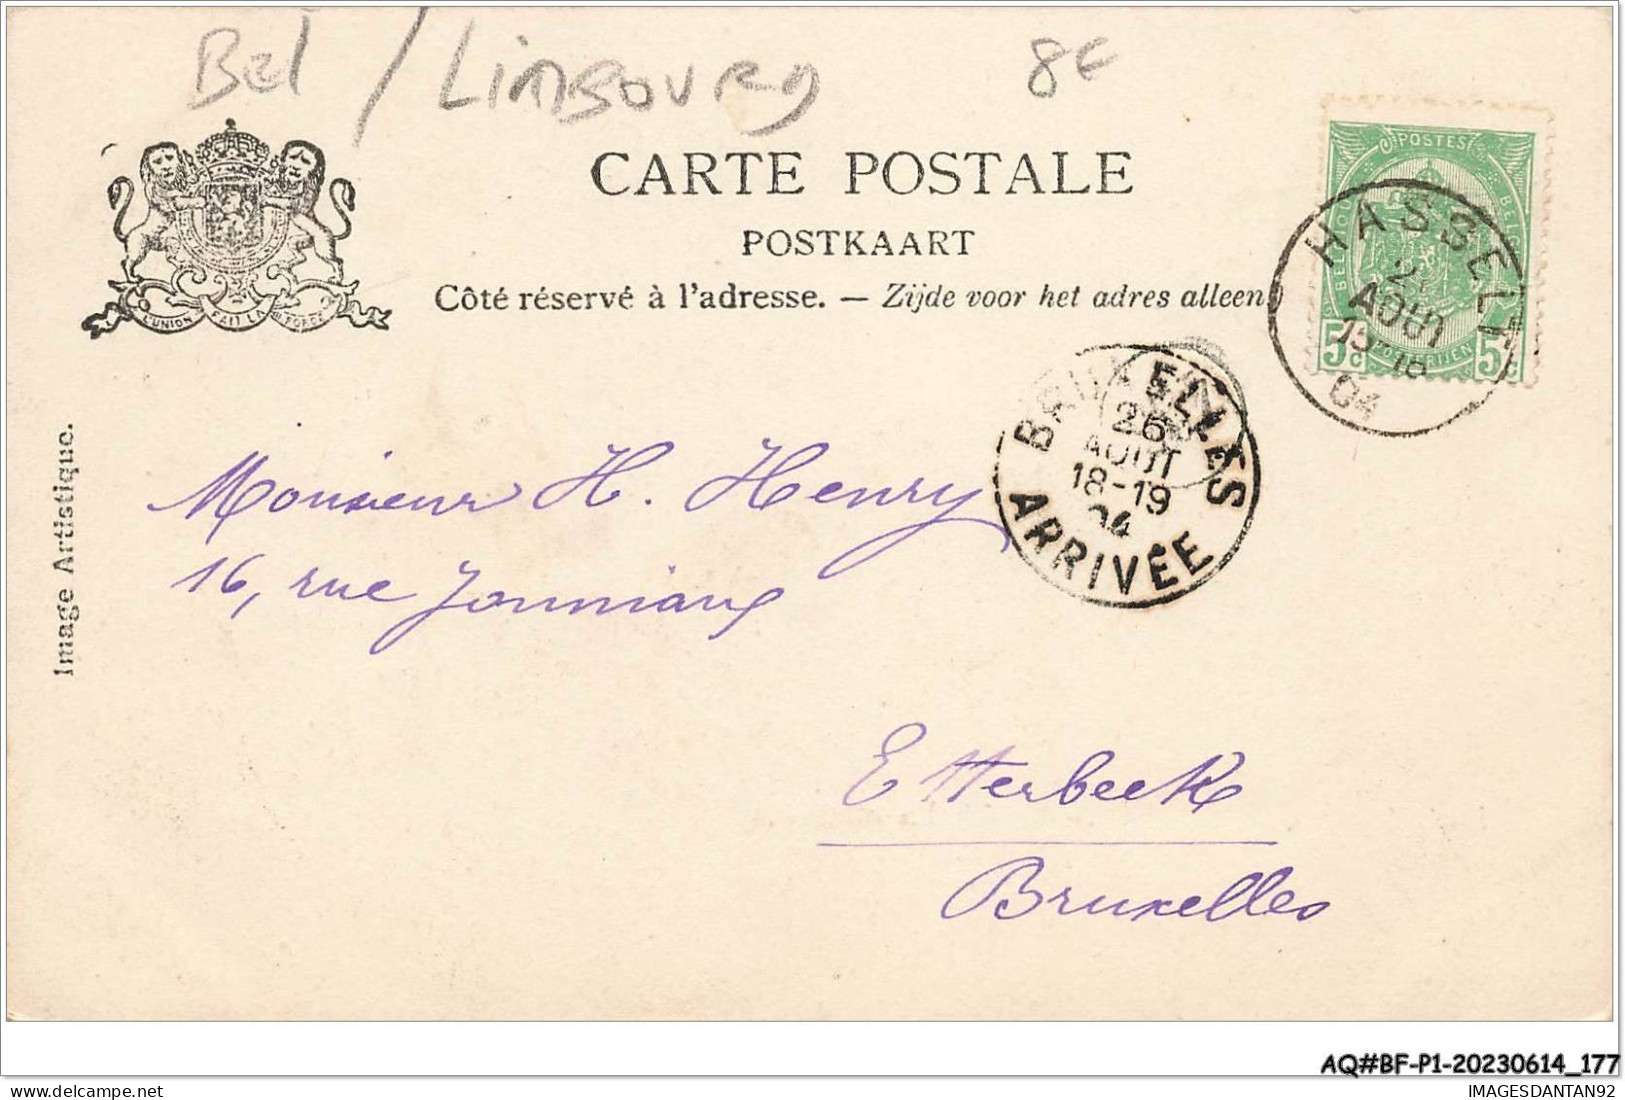 Bel / Limbourg 8€
CARTE POSTALE
POSTKAART
Côté réservé à l'adresse. — Zijde voor het adres alleen
L'UNION FAIT LA FORCE
POSTES
BELGIQUE BELGIË
5c POSTERIJEN 5c
HASSELT
AOUT
04
BRUXELLES
26
AOUT
18-19
04
ARRIVÉE
Image Artistique.
Monsieur H. Henry
16, rue
Etterbeek
Bruxelles
AQ#BF-P1-20230614_177
IMAGESDANTAN92